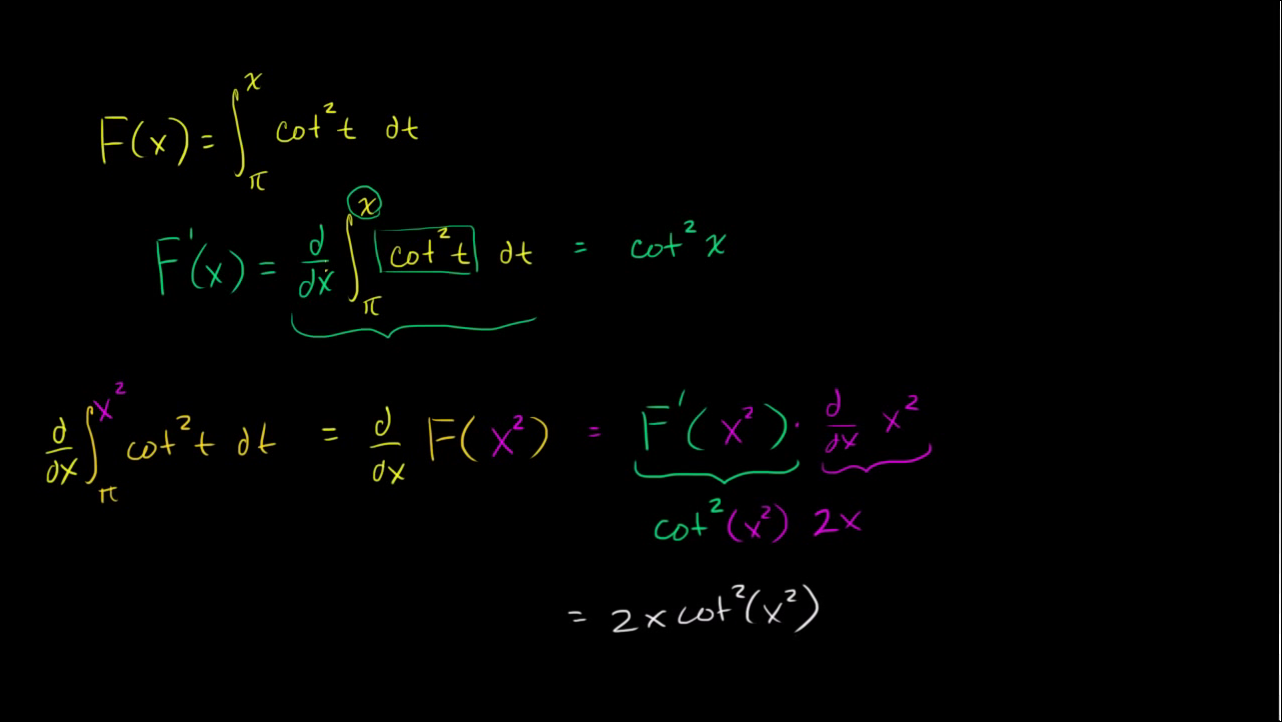 F(x) = ∫_π^x cot² t dt
F'(x) = d/dx ∫_π^x cot² t dt = cot² x
d/dx ∫_π^{x²} cot² t dt = d/dx F(x²) = F'(x²) · d/dx x²
cot² (x²) 2x
= 2x cot² (x²)